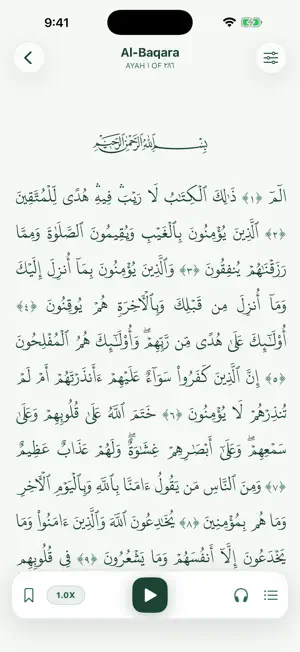 9:41
Al-Baqara
AYAH ١ OF ٢٨٦
بِسْمِ اللَّهِ الرَّحْمَٰنِ الرَّحِيمِ
الٓمٓ ﴿١﴾ ذَٰلِكَ ٱلْكِتَـٰبُ لَا رَيْبَ ۛ فِيهِ ۛ هُدًى لِّلْمُتَّقِينَ
﴿٢﴾ ٱلَّذِينَ يُؤْمِنُونَ بِٱلْغَيْبِ وَيُقِيمُونَ ٱلصَّلَوٰةَ وَمِمَّا
رَزَقْنَـٰهُمْ يُنفِقُونَ ﴿٣﴾ وَٱلَّذِينَ يُؤْمِنُونَ بِمَآ أُنزِلَ إِلَيْكَ
وَمَآ أُنزِلَ مِن قَبْلِكَ وَبِٱلْـَٔاخِرَةِ هُمْ يُوقِنُونَ ﴿٤﴾
أُو۟لَـٰٓئِكَ عَلَىٰ هُدًى مِّن رَّبِّهِمْ ۖ وَأُو۟لَـٰٓئِكَ هُمُ ٱلْمُفْلِحُونَ
﴿٥﴾ إِنَّ ٱلَّذِينَ كَفَرُوا۟ سَوَآءٌ عَلَيْهِمْ ءَأَنذَرْتَهُمْ أَمْ لَمْ
تُنذِرْهُمْ لَا يُؤْمِنُونَ ﴿٦﴾ خَتَمَ ٱللَّهُ عَلَىٰ قُلُوبِهِمْ وَعَلَىٰ
سَمْعِهِمْ ۖ وَعَلَىٰٓ أَبْصَـٰرِهِمْ غِشَـٰوَةٌ ۖ وَلَهُمْ عَذَابٌ عَظِيمٌ
﴿٧﴾ وَمِنَ ٱلنَّاسِ مَن يَقُولُ ءَامَنَّا بِٱللَّهِ وَبِٱلْيَوْمِ ٱلْـَٔاخِرِ
وَمَا هُم بِمُؤْمِنِينَ ﴿٨﴾ يُخَـٰدِعُونَ ٱللَّهَ وَٱلَّذِينَ ءَامَنُوا۟ وَمَا
يَخْدَعُونَ إِلَّآ أَنفُسَهُمْ وَمَا يَشْعُرُونَ ﴿٩﴾ فِى قُلُوبِهِم
1.0X